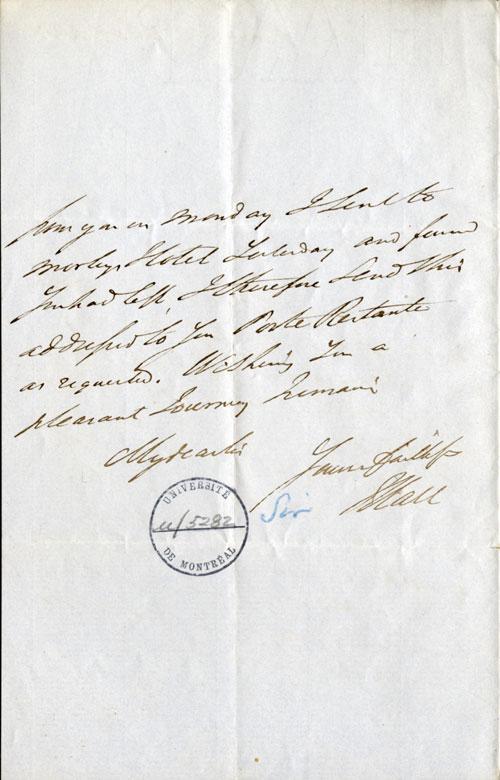 from you on Monday I sent to
Morleys Hotel Yesterday and found
You had left, I therefore Send this
addressed to You Poste Restante
as requested. Wishing You a
pleasant Journey I remain
My dear Sir
Yours faithfy
Hall
UNIVERSITÉ
u/5282
DE MONTRÉAL
Sir